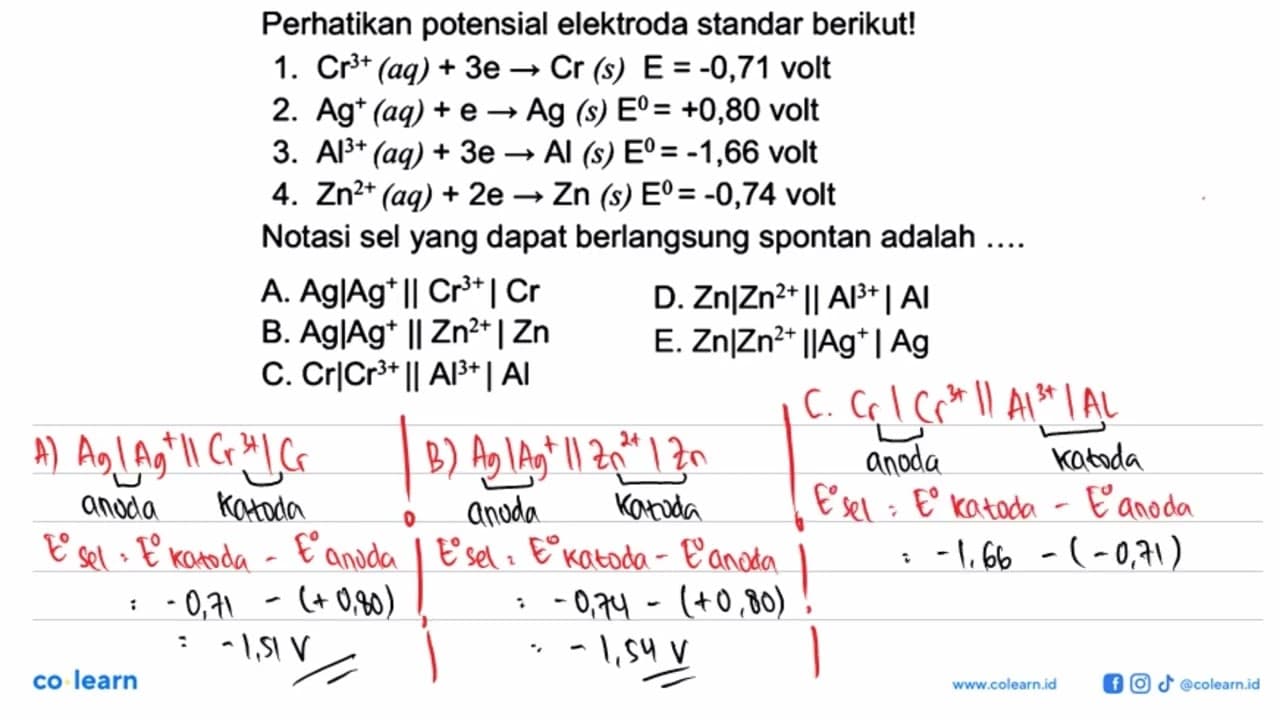 Perhatikan potensial elektroda standar berikut!
1. Cr³⁺ (aq) + 3e → Cr (s) E = -0,71 volt
2. Ag⁺ (aq) + e → Ag (s) E⁰ = +0,80 volt
3. Al³⁺ (aq) + 3e → Al (s) E⁰ = -1,66 volt
4. Zn²⁺ (aq) + 2e → Zn (s) E⁰ = -0,74 volt
Notasi sel yang dapat berlangsung spontan adalah ....
A. Ag|Ag⁺ || Cr³⁺ | Cr
B. Ag|Ag⁺ || Zn²⁺ | Zn
C. Cr|Cr³⁺ || Al³⁺ | Al
D. Zn|Zn²⁺ || Al³⁺ | Al
E. Zn|Zn²⁺ ||Ag⁺ | Ag
A) Ag|Ag⁺||Cr³⁺|Cr
anoda katoda
E° sel = E° katoda - E° anoda
= -0,71 - (+0,80)
= -1,51 V
B) Ag|Ag⁺||Zn²⁺|Zn
anoda katoda
E° sel = E° katoda - E° anoda
= -0,74 - (+0,80)
= -1,54 V
C. Cr|Cr³⁺||Al³⁺|Al
anoda katoda
E° sel = E° katoda - E° anoda
= -1,66 - (-0,71)
co learn
www.colearn.id @colearn.id